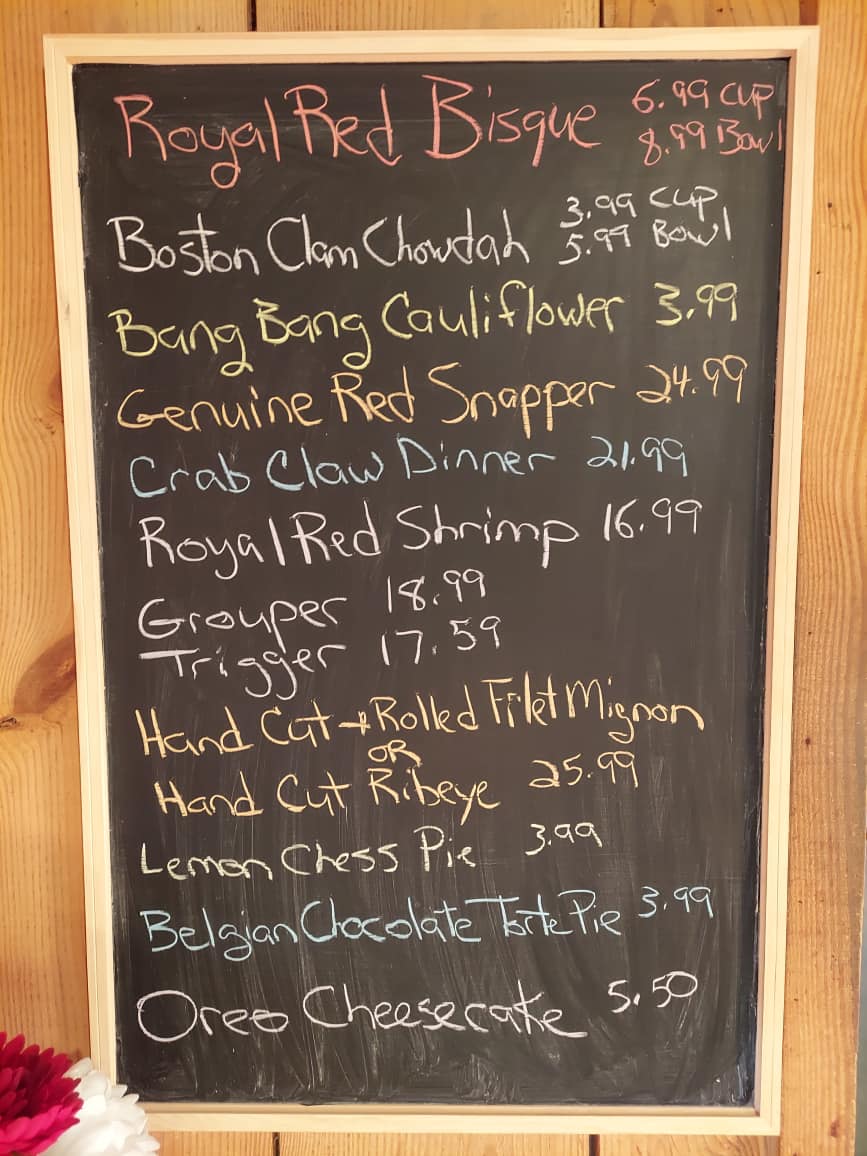 Royal Red Bisque 6.99 cup
8.99 Bowl
Boston Clam Chowdah 3.99 cup
5.99 Bowl
Bang Bang Cauliflower 3.99
Genuine Red Snapper 24.99
Crab Claw Dinner 21.99
Royal Red Shrimp 16.99
Grouper 18.99
Trigger 17.59
Hand Cut + Rolled Filet Mignon
OR
Hand Cut Ribeye 25.99
Lemon Chess Pie 3.99
Belgian Chocolate Torte Pie 3.99
Oreo Cheesecake 5.50